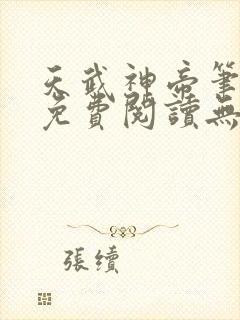 天武神帝筆
免費閱讀無
張續